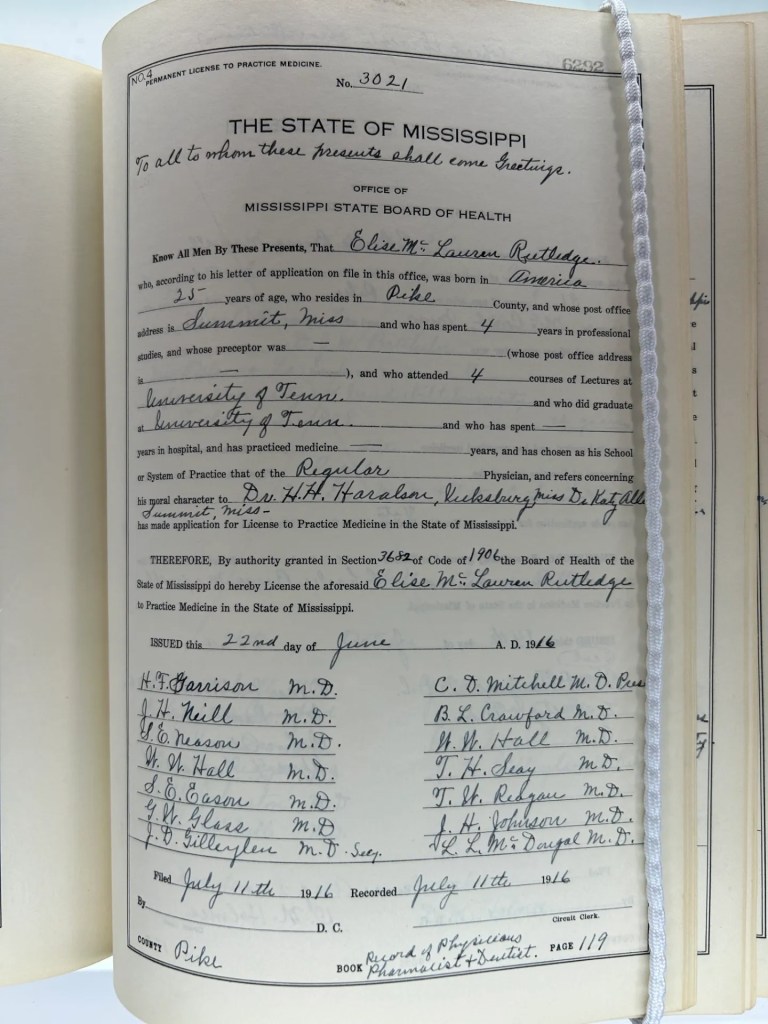 NO. 4 PERMANENT LICENSE TO PRACTICE MEDICINE.
6292
No. 3021
THE STATE OF MISSISSIPPI
To all to whom these presents shall come Greetings.
OFFICE OF
MISSISSIPPI STATE BOARD OF HEALTH
Know All Men By These Presents, That Elise Mc Lauren Rutledge.
who, according to his letter of application on file in this office, was born in America
25 years of age, who resides in Pike County, and whose post office
address is Summit, Miss and who has spent 4 years in professional
studies, and whose preceptor was — (whose post office address
is — ), and who attended 4 courses of Lectures at
University of Tenn. and who did graduate
at University of Tenn. and who has spent —
years in hospital, and has practiced medicine — years, and has chosen as his School
or System of Practice that of the Regular Physician, and refers concerning
his moral character to Dr. H.H. Haralson, Vicksburg Miss Dr Katy Alle
Summit, Miss -
has made application for License to Practice Medicine in the State of Mississippi.
THEREFORE, By authority granted in Section 3682 of Code of 1906 the Board of Health of the
State of Mississippi do hereby License the aforesaid Elise Mc Lauren Rutledge
to Practice Medicine in the State of Mississippi.
ISSUED this 22nd day of June A. D. 1916
H.F. Garrison M.D. C. D. Mitchell M. D. Pres
J. H. Neill M.D. B. L. Crawford M. D.
S. E. Neason M.D. W. W. Hall M.D.
W. W. Hall M.D. T. H. Seay M.D.
S. E. Eason M.D. T. W. Reagan M.D.
G. W. Glass M.D J. H. Johnson M.D.
J. D. Gilleylen M.D. Secy. L. L. Mc Dougal M. D.
Filed July 11th 1916 Recorded July 11th 1916
By
D. C. Circuit Clerk.
COUNTY Pike BOOK Record of Physicians Pharmacist & Dentist. PAGE 119